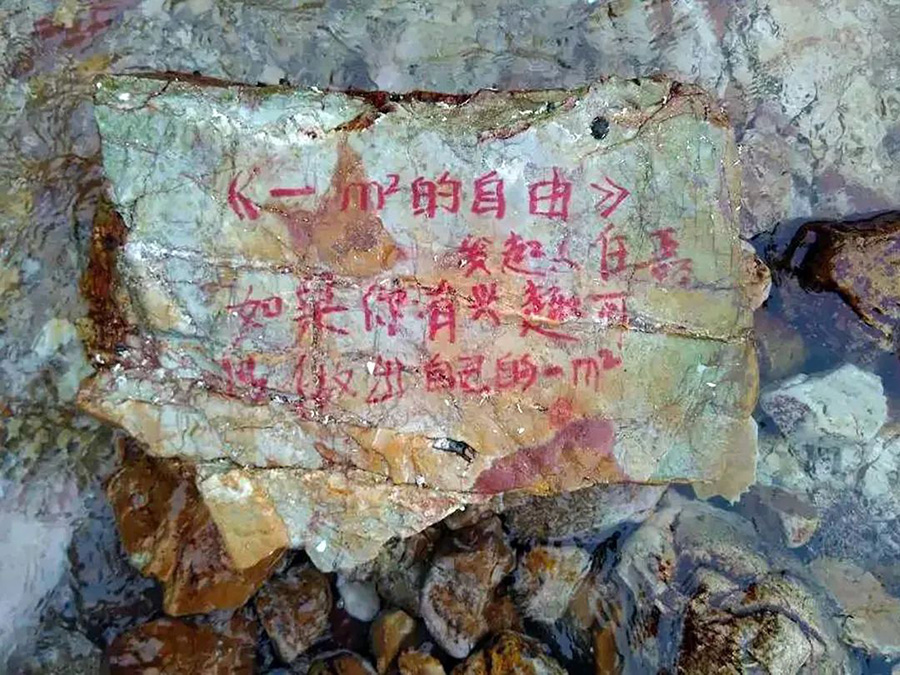 《一m²的自由》
发起人 任
如果你有兴趣可
以做出自己的一m²